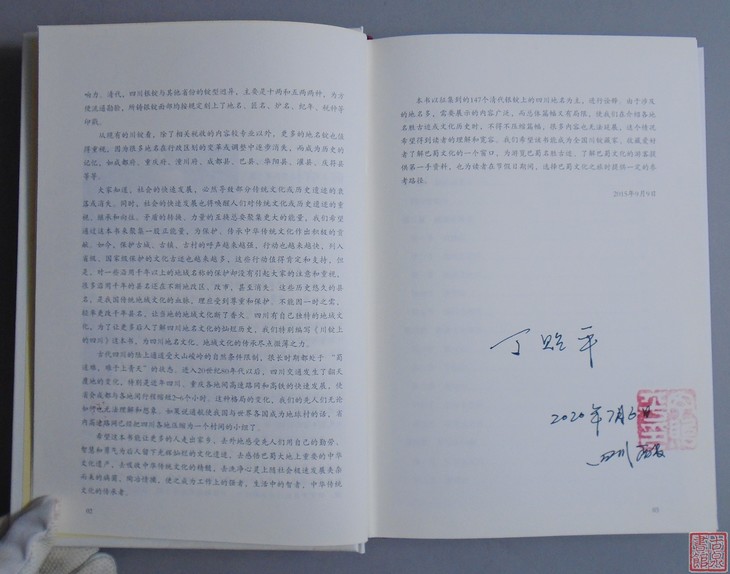 响力。清代，四川银锭与其他省份的锭型迥异，主要是十两和五两两种，为方
便流通勘验，所铸银锭面部均按规定制上了地名、匠名、炉名、纪年、税种等
印戳。
从现有的川锭看，除了相关税收的内容较专业以外，更多的地名锭也值
得重视，因为很多地名在行政区划的变革或调整中逐步消失，而成为历史的
记忆，如成都府、重庆府、潼川府、成都县、巴县、华阳县、灌县、茂符县
等等。
大家知道，社会的快速发展，必然导致部分传统文化或历史遗迹的衰
落或消失。同时，社会的快速发展也唤醒人们对传统文化或历史遗迹的重
视、继承和向往。矛盾的转换、力量的互换总要聚集更大的能量，我们希望
通过这本书来聚集一股正能量，为保护、传承中华传统文化作出积极的贡
献。如今，保护古城、古镇、古村的呼声越来越强，行动也越来越快，列入
省级、国家级保护的文化古迹也越来越多，这些行动值得肯定和支持。但
是，对一些沿用千年以上的地域名称的保护却没有引起大家的注意和重视，
很多沿用千年的县名还在不断地改区、改市，甚至消失。这些历史悠久的县
名，是我国传统地域文化的血脉，理应受到尊重和保护。不能因一时之需，
轻率更改千年县名，让当地的地域文化断了香火。四川有自己独特的地域文
化，为了让更多后人了解四川地名文化的灿烂历史，我们特别编写《川锭上
的四川》这本书，为四川地名文化、地域文化的传承尽点微薄之力。
古代四川的陆上通道受大山峻岭的自然条件限制，很长时期都处于“蜀
道难，难于上青天”的状态。进入20世纪80年代以后，四川交通发生了翻天
覆地的变化，特别是近年四川、重庆各地间高速路网和高铁的快速发展，使
省会成都与各地间行程缩短2~6个小时，这种格局的变化，我们的先人们无论
如何也无法理解和想象。如果说通航使我国与世界各国成为地球村的话，省
内高速路网已经把四川各地压缩为一个时间的小镇了。
希望这本书能让更多的人走出家乡，去外地感受先人们用自己的勤劳、
智慧和勇气为后人留下光辉灿烂的文化遗迹，去感悟巴蜀大地上重要的中华
文化遗产，去吸放中华传统文化的精髓，去洗净心灵上随社会极速发展夹杂
而来的浊菌，陶冶情操，使之成为工作上的强者，生活中的智者，中华传统
文化的传承者。
02
本书以征集到的147个清代银锭上的四川地名为主，进行诠释。由于涉及
的地名多，需要展示的内容广泛，而总体篇幅又有局限，使我们在介绍各地
名胜古迹或文化历史时，不得不压缩篇幅，很多内容也无法延展，这个情况
希望得到读者的理解和宽容。我们希望该书能成为全国川锭藏家、收藏爱好
者了解巴蜀文化的一个窗口，为游览巴蜀名胜古迹、了解巴蜀文化的游客提
供第一手资料，也为读者在节假日期间，选择巴蜀文化之旅时提供一定的参
考路径。
2019年9月9日
丁贻平
2020年7月6日
四川
03